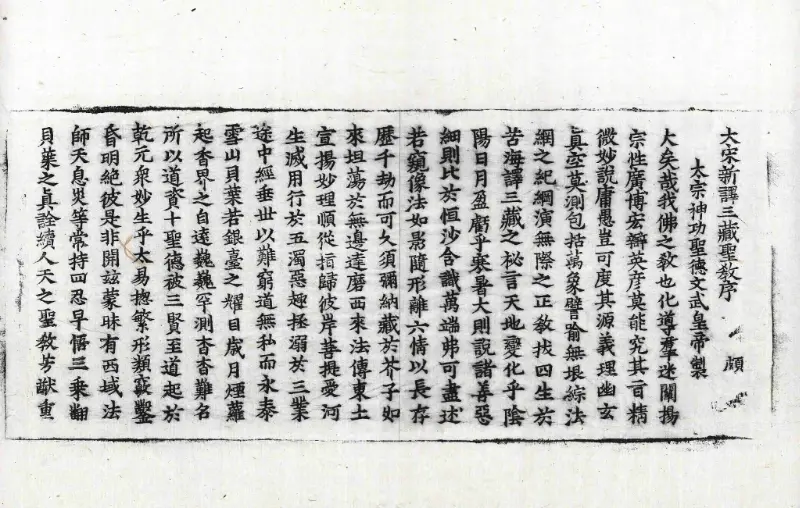 大宋新譯三藏聖教序 顛
太宗神功聖德文武皇帝製
大矣哉我佛之教也化導羣迷闡揚
宗性廣博宏辯英彥莫能究其旨精
微妙說庸愚豈可度其源義理幽玄
真空莫測包括萬象譬喻無垠綜法
網之紀綱演無際之正教拔四生於
苦海譯三藏之秘言天地變化乎陰
陽日月盈虧乎寒暑大則說諸善惡
細則比於恒沙含識萬端弗可盡述
若窺像法如影隨形離六情以長存
歷千劫而可久須彌納藏於芥子如
來坦蕩於無邊達磨西來法傳東土
宣揚妙理順從指歸彼岸菩提愛河
生滅用行於五濁惡趣拯溺於三業
途中經垂世以難窮道無私而永泰
雪山貝葉若銀臺之耀目歲月煙蘿
起香界之自遠巍巍罕測杳杳難名
所以道資十聖德被三賢至道起於
乾元眾妙生乎太易摠繁形類竅鑿
昏明絕彼是非開茲蒙昧有西域法
師天息災等常持四忍早悟三乘翻
貝葉之真詮續人天之聖教芳猷重